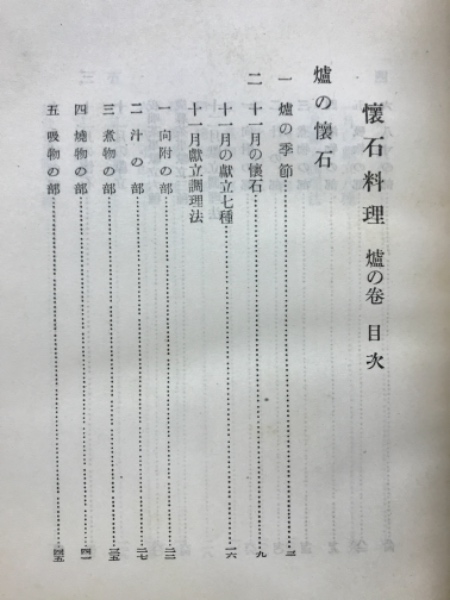 懷石料理 爐の卷 目次
爐の懷石
一 爐の季節…………三
二 十一月の懷石…………九
十一月の獻立七種…………一六
十一月獻立調理法
一 向附の部…………二二
二 汁の部…………二七
三 煮物の部…………三五
四 燒物の部…………四一
五 吸物の部…………四五